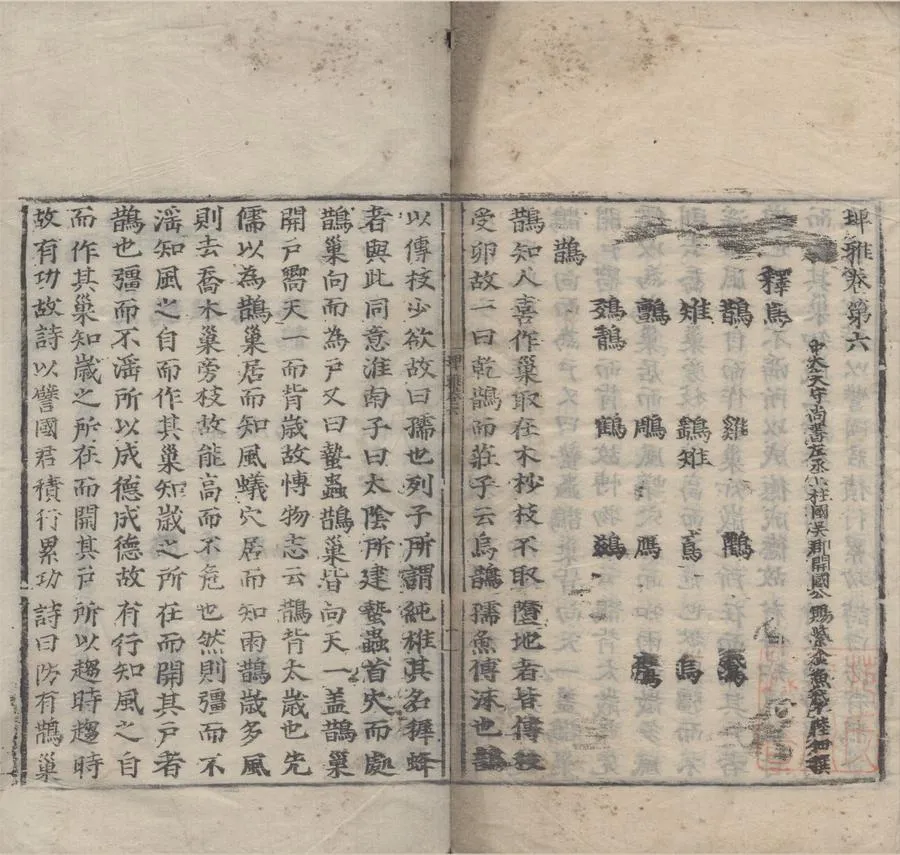 埤雅卷第六
中大夫守尚書左丞上柱國吳郡開國公賜紫金魚袋陸佃撰
釋鳥
鵲 雞 鸜
雉 鷂雉 鳶 烏
鸇 鵰 鷹 鷹
鵁鶄 鶴 鷁
鵲
鵲知人喜作巢取在木杪枝不取墮地者皆傳枝
受卵故一曰乾鵲而莊子云烏鵲孺魚傳沫也鵲
以傳枝少欲故曰孺也列子所謂純雄其名穉蜂
者與此同意淮南子曰太陰所建蟄蟲首穴而處
鵲巢向而為戶又曰蟄蟲鵲巢皆向天一蓋鵲巢
開戶嚮天一而背歲故博物志云鵲背太歲也先
儒以為鵲巢居而知風蟻穴居而知雨鵲歲多風
則去喬木巢旁枝故能高而不危也然則彊而不
淫知風之自而作其巢知歲之所在而開其戶者
鵲也彊而不淫所以成德成德故有行知風之自
而作其巢知歲之所在而開其戶所以趨時趨時
故有功故詩以譬國君積行累功詩曰防有鵲巢
埤雅卷六